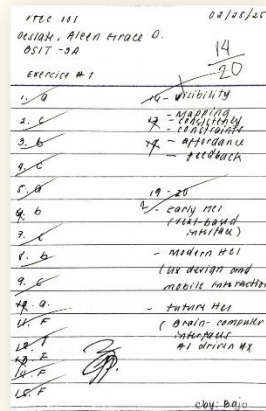 ITEC 101
02/25/25
Aleen Grace D.
BSIT - 3A
14
20
Exercise # 1
1. a
2. c
3. b
4. c
5. a
6. b
7. c
8. b
9. c
10. a.
11. F
12. F
13. F
14. F
15. F
- visibility
- Mapping
- consistency
- constraints
- affordance
- feedback
19 - 20
- Early HCI
(text-based
interface)
- Modern HCI
(ux design and
mobile interaction
- Future HCI
( Brain-computer
interfaces
AI driven ux
cby: Bajo